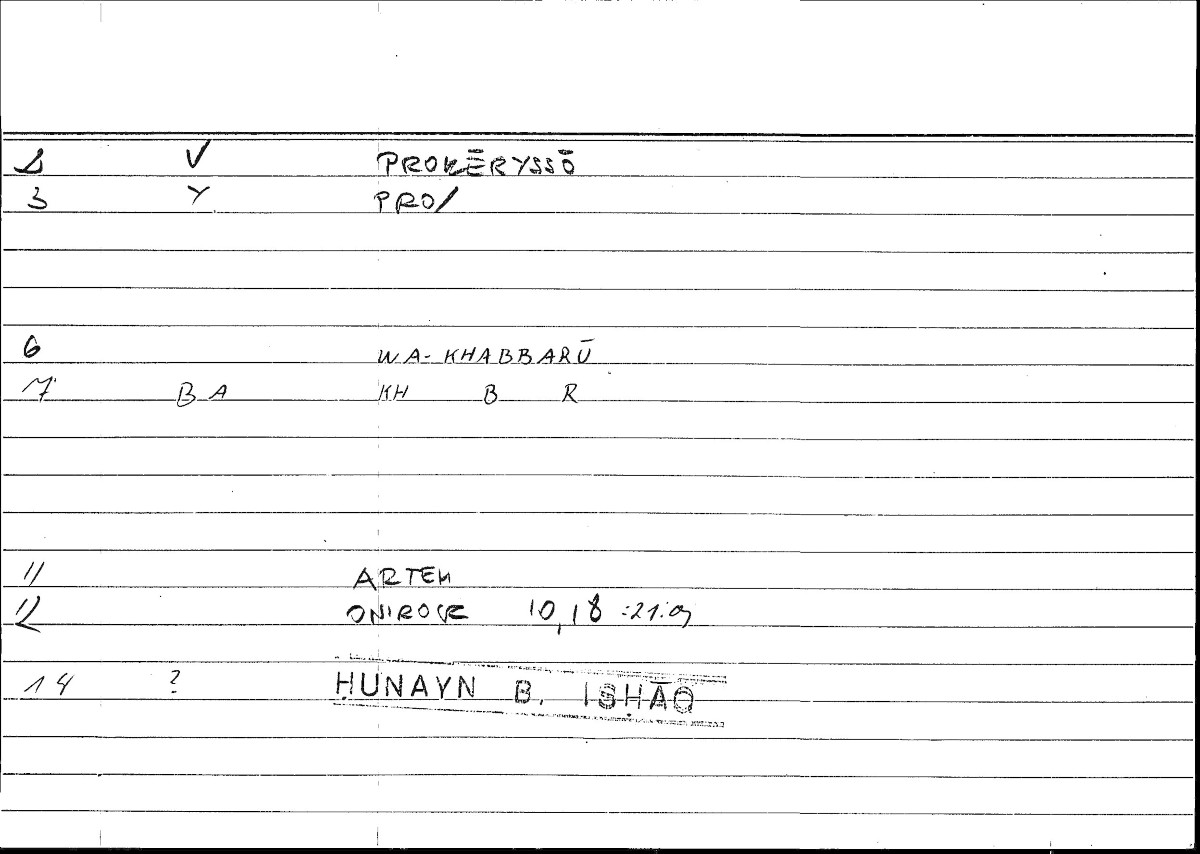 2 V PROKĒRYSSŌ
3 Y PRO/
6 WA-KHABBARŪ
7 BA KH B R
11 ARTEM
12 ONIROCR 10,18 :21.9
14 ? ḤUNAYN B. ISḤĀQ